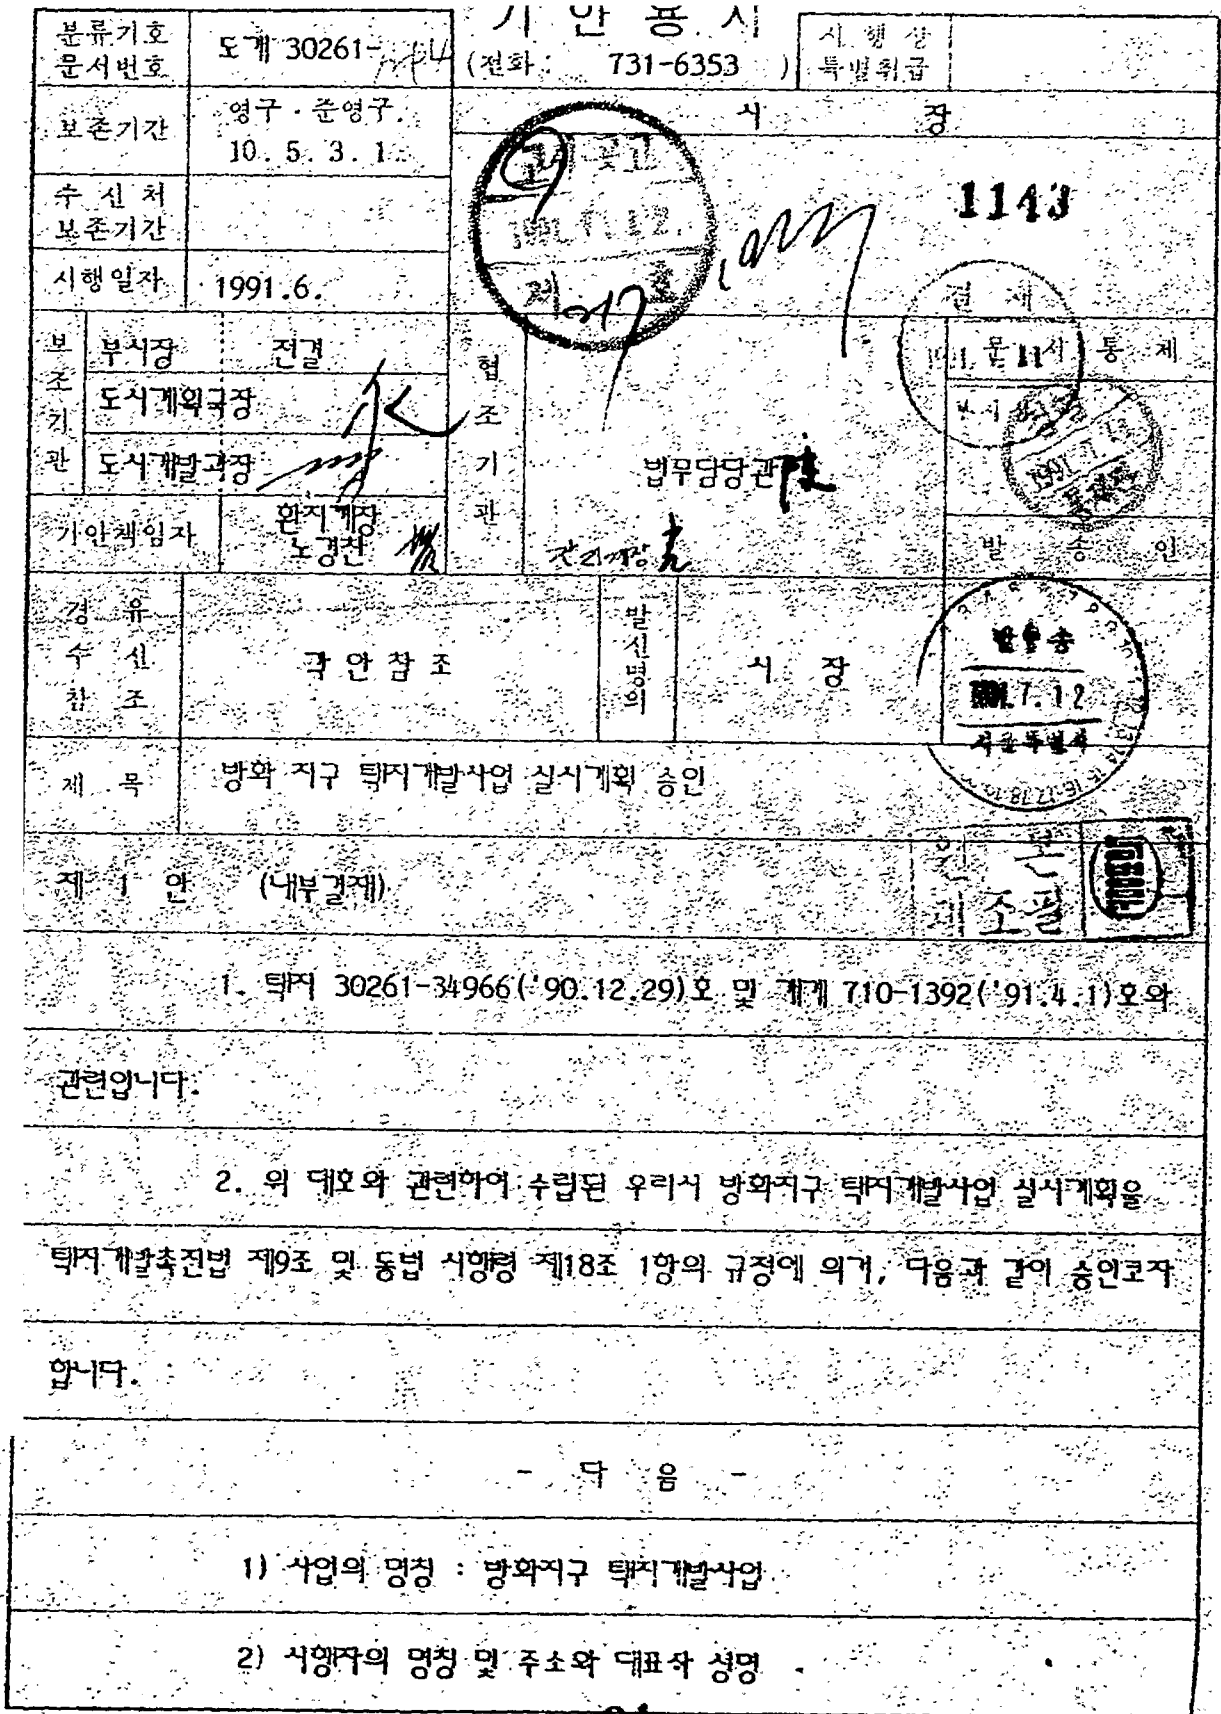 기 안 용 지
분류기호
문서번호
도개 30261-
(전화 : 731-6353 )
시 행 상
특별취급
보존기간
영구 · 준영구.
10. 5. 3. 1.
시 장
수 신 처
보존기간
1143
시행일자
1991.6.
결 재
보
조
기
관
부시장 전결
도시계획국장
도시개발과장
협
조
기
관
법무담당관
문 서 통 제
1991.7.13
기안책임자
환지계장
노경찬
발 송 인
경 유
수 신
참 조
각 안 참 조
발
신
명
의
시 장
발 송
1991.7.12
서울특별시
제 목
방화 지구 택지개발사업 실시계획 승인
제 1 안 (내부결재)
1. 택지 30261-34966('90.12.29)호 및 계계 710-1392('91.4.1)호와
관련입니다.
2. 위 대호와 관련하여 수립된 우리시 방화지구 택지개발사업 실시계획을
택지개발촉진법 제9조 및 동법 시행령 제18조 1항의 규정에 의거, 다음과 같이 승인코자
합니다.
- 다 음 -
1) 사업의 명칭 : 방화지구 택지개발사업
2) 시행자의 명칭 및 주소와 대표자 성명